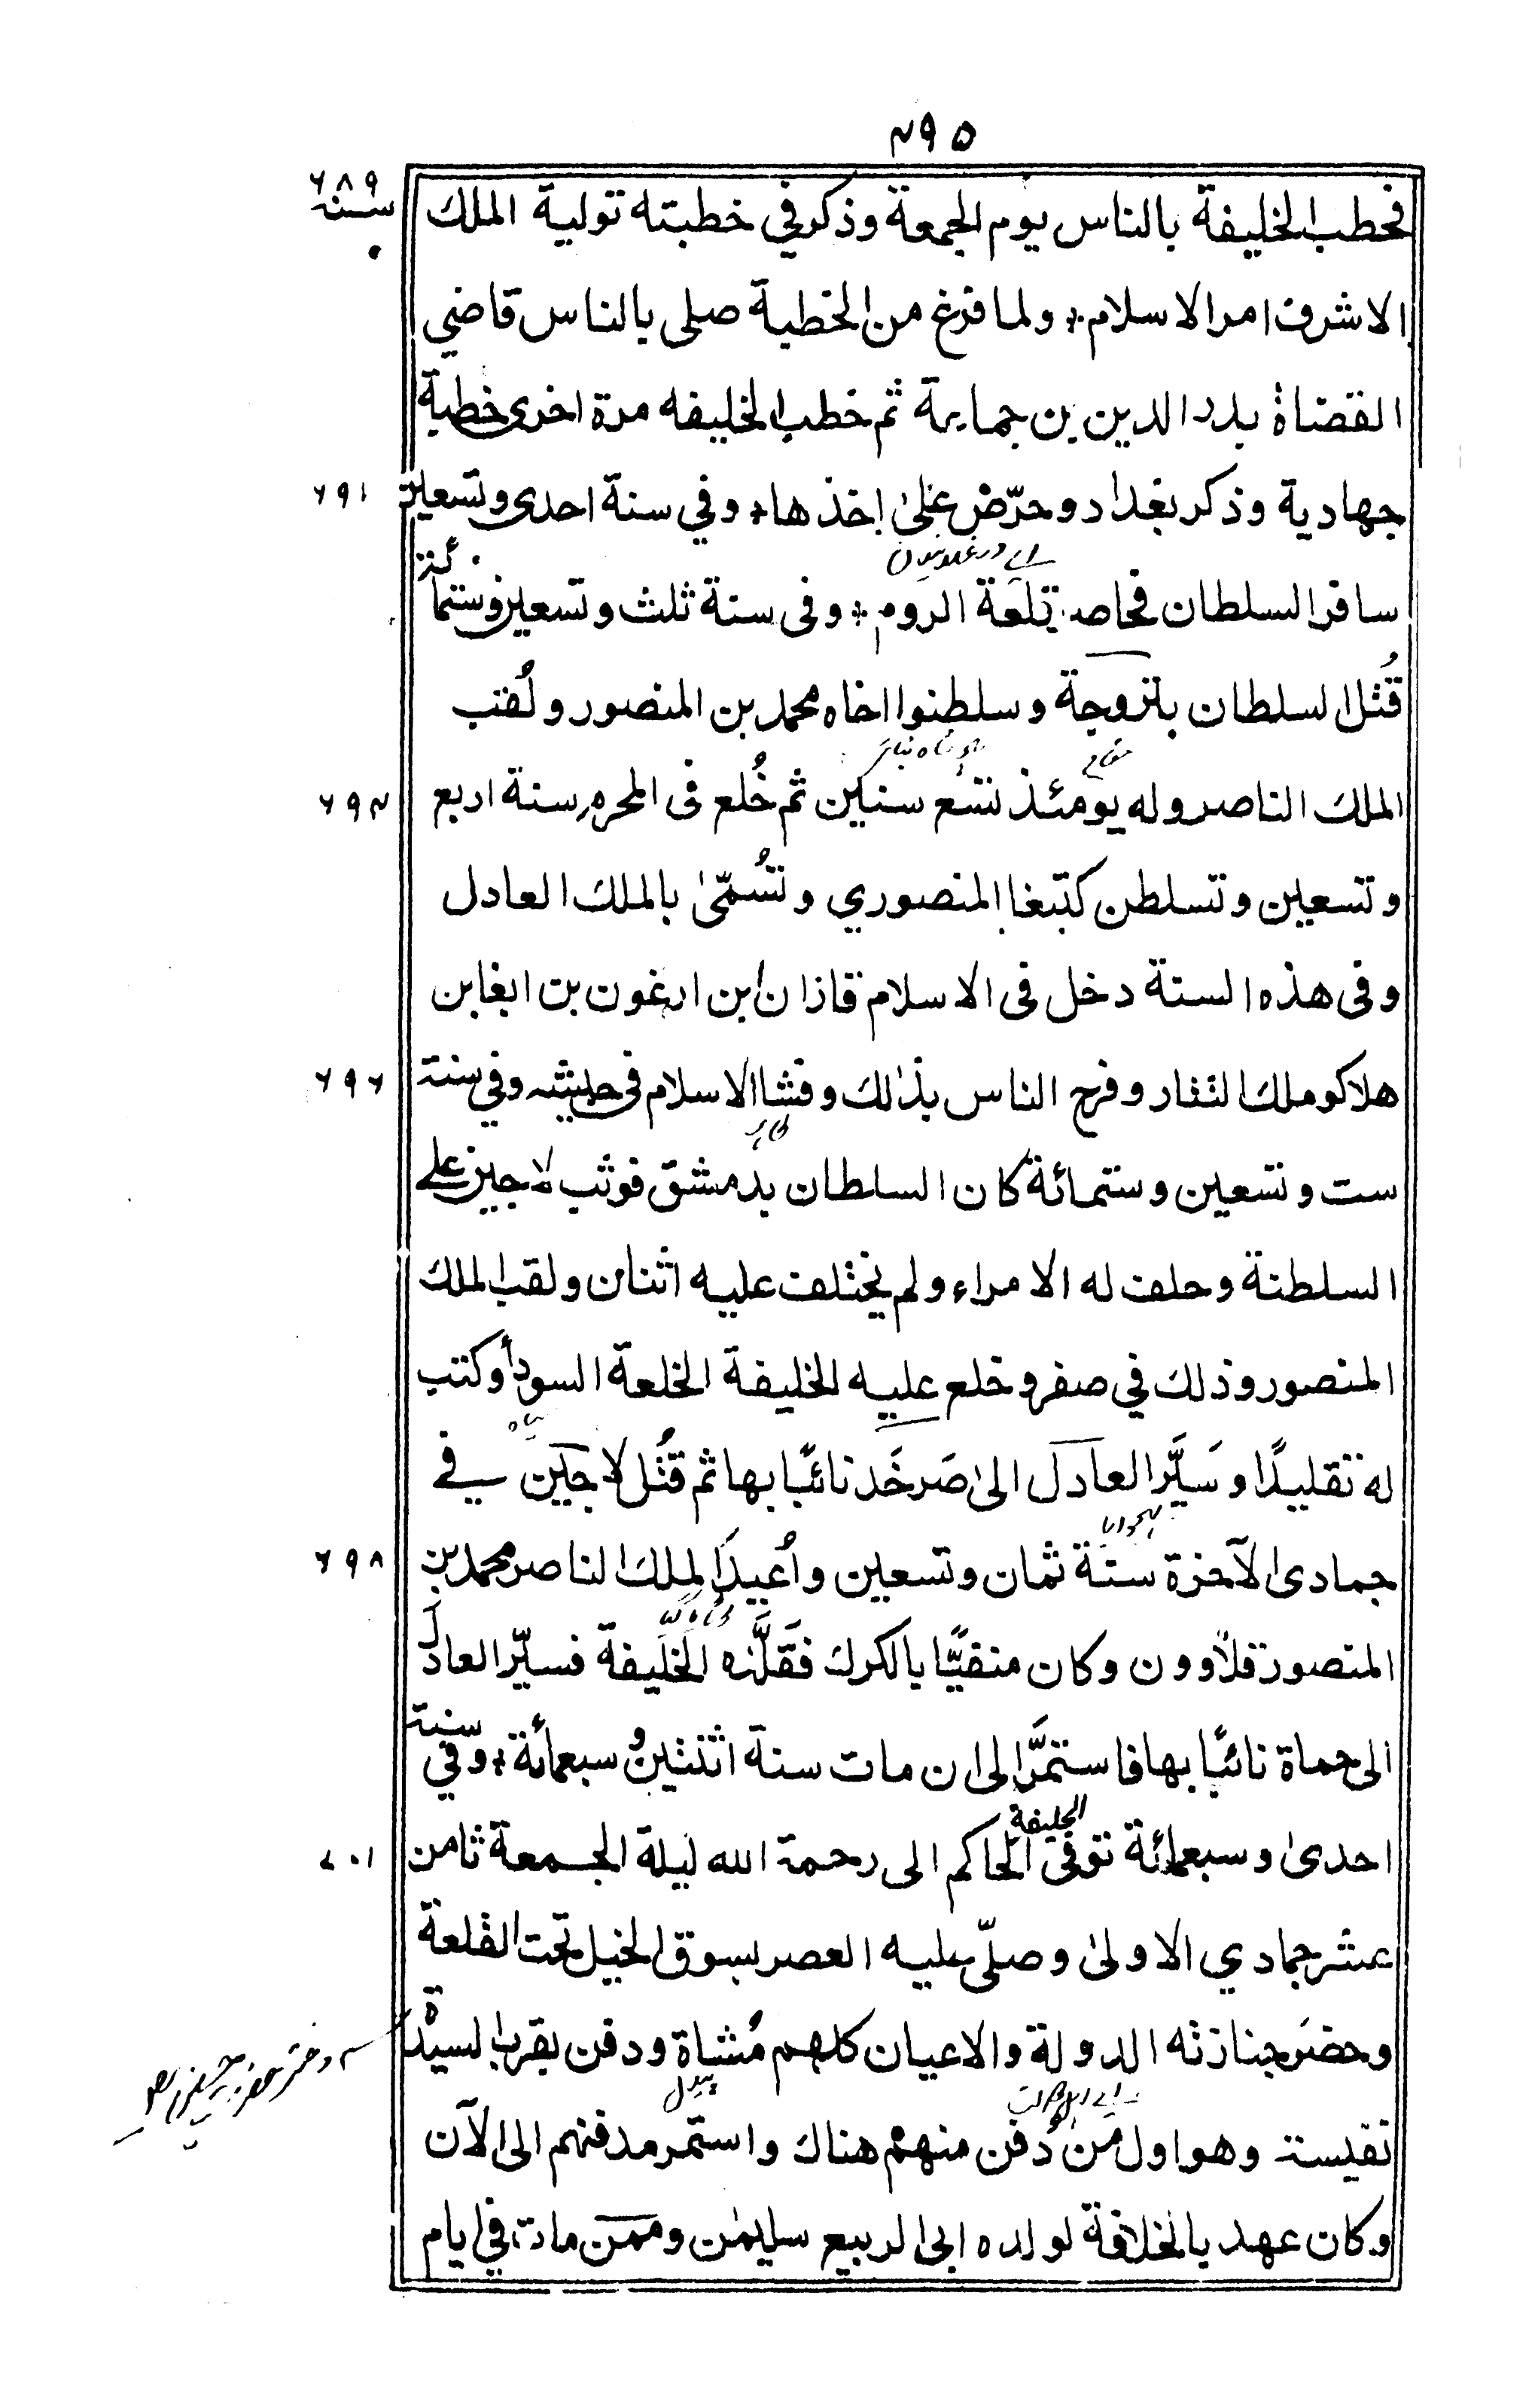 ۴۹۵
۶۸۹
سنة
فخطب الخليفة بالناس يوم الجمعة وذكر في خطبته تولية الملك
الاشرف امر الاسلام * ولما فرغ من الخطبة صلى بالناس قاضي
القضاة بدر الدين بن جماعة ثم خطب الخليفه مرة اخرى خطبة
جهادية وذكر بغداد وحرّض على اخذها * وفي سنة احدى وتسعين
۶۹۱
سافر السلطان فحاصر قلعة الروم * وفى سنة ثلث وتسعين وستمائة
قُتل السلطان بتروجة وسلطنوا اخاه محمد بن المنصور ولُقب
الملك الناصر وله يومئذ تسع سنين ثم خُلع فى المحرم سنة اربع
۶۹۴
وتسعين وتسلطن كتبغا المنصوري وتُسمّىٰ بالملك العادل
وفى هذه السنة دخل فى الاسلام قازان ابن ارغون بن ابغا بن
هلاكو ملك التتار وفرح الناس بذلك وفشا الاسلام فى جيشه وفي سنة
۶۹۶
ست وتسعين وستمائة كان السلطان بدمشق فوثب لاجين على
السلطنة وحلف له الامراء ولم يختلف عليه اثنان ولقب الملك
المنصور وذلك في صفر وخلع عليه الخليفة الخلعة السودأ وكتب
له تقليدًا وسَيَّر العادل الىٰ صَرخَد نائبًا بها ثم قُتل لاجين في
جمادى الآخرة سنة ثمان وتسعين واُعيد الملك الناصر محمد بن
۶۹۸
المنصور قلاوون وكان منفيًّا بالكرك فقَلَّده الخليفة فسيّر العادل
الى حماة نائبًا بها فاستمرَّ الى ان مات سنة اثنتين وسبعمائة * وفي سنة
احدىٰ وسبعمائة توفى الخليفة الحاكم الى رحمة الله ليلة الجمعة ثامن
۷۰۱
عشر جمادي الاولىٰ وصلّى عليه العصر بسوق الخيل تحت القلعة
وحضر جنازته الدولة والاعيان كلهم مُشاة ودفن بقرب السيدة
نفيسة وهو اول مَن دُفن منهم هناك واستمر مدفنهم الى الآن
وكان عهد بالخلافة لولده ابى الربيع سليمٰن وممن مات في ايام